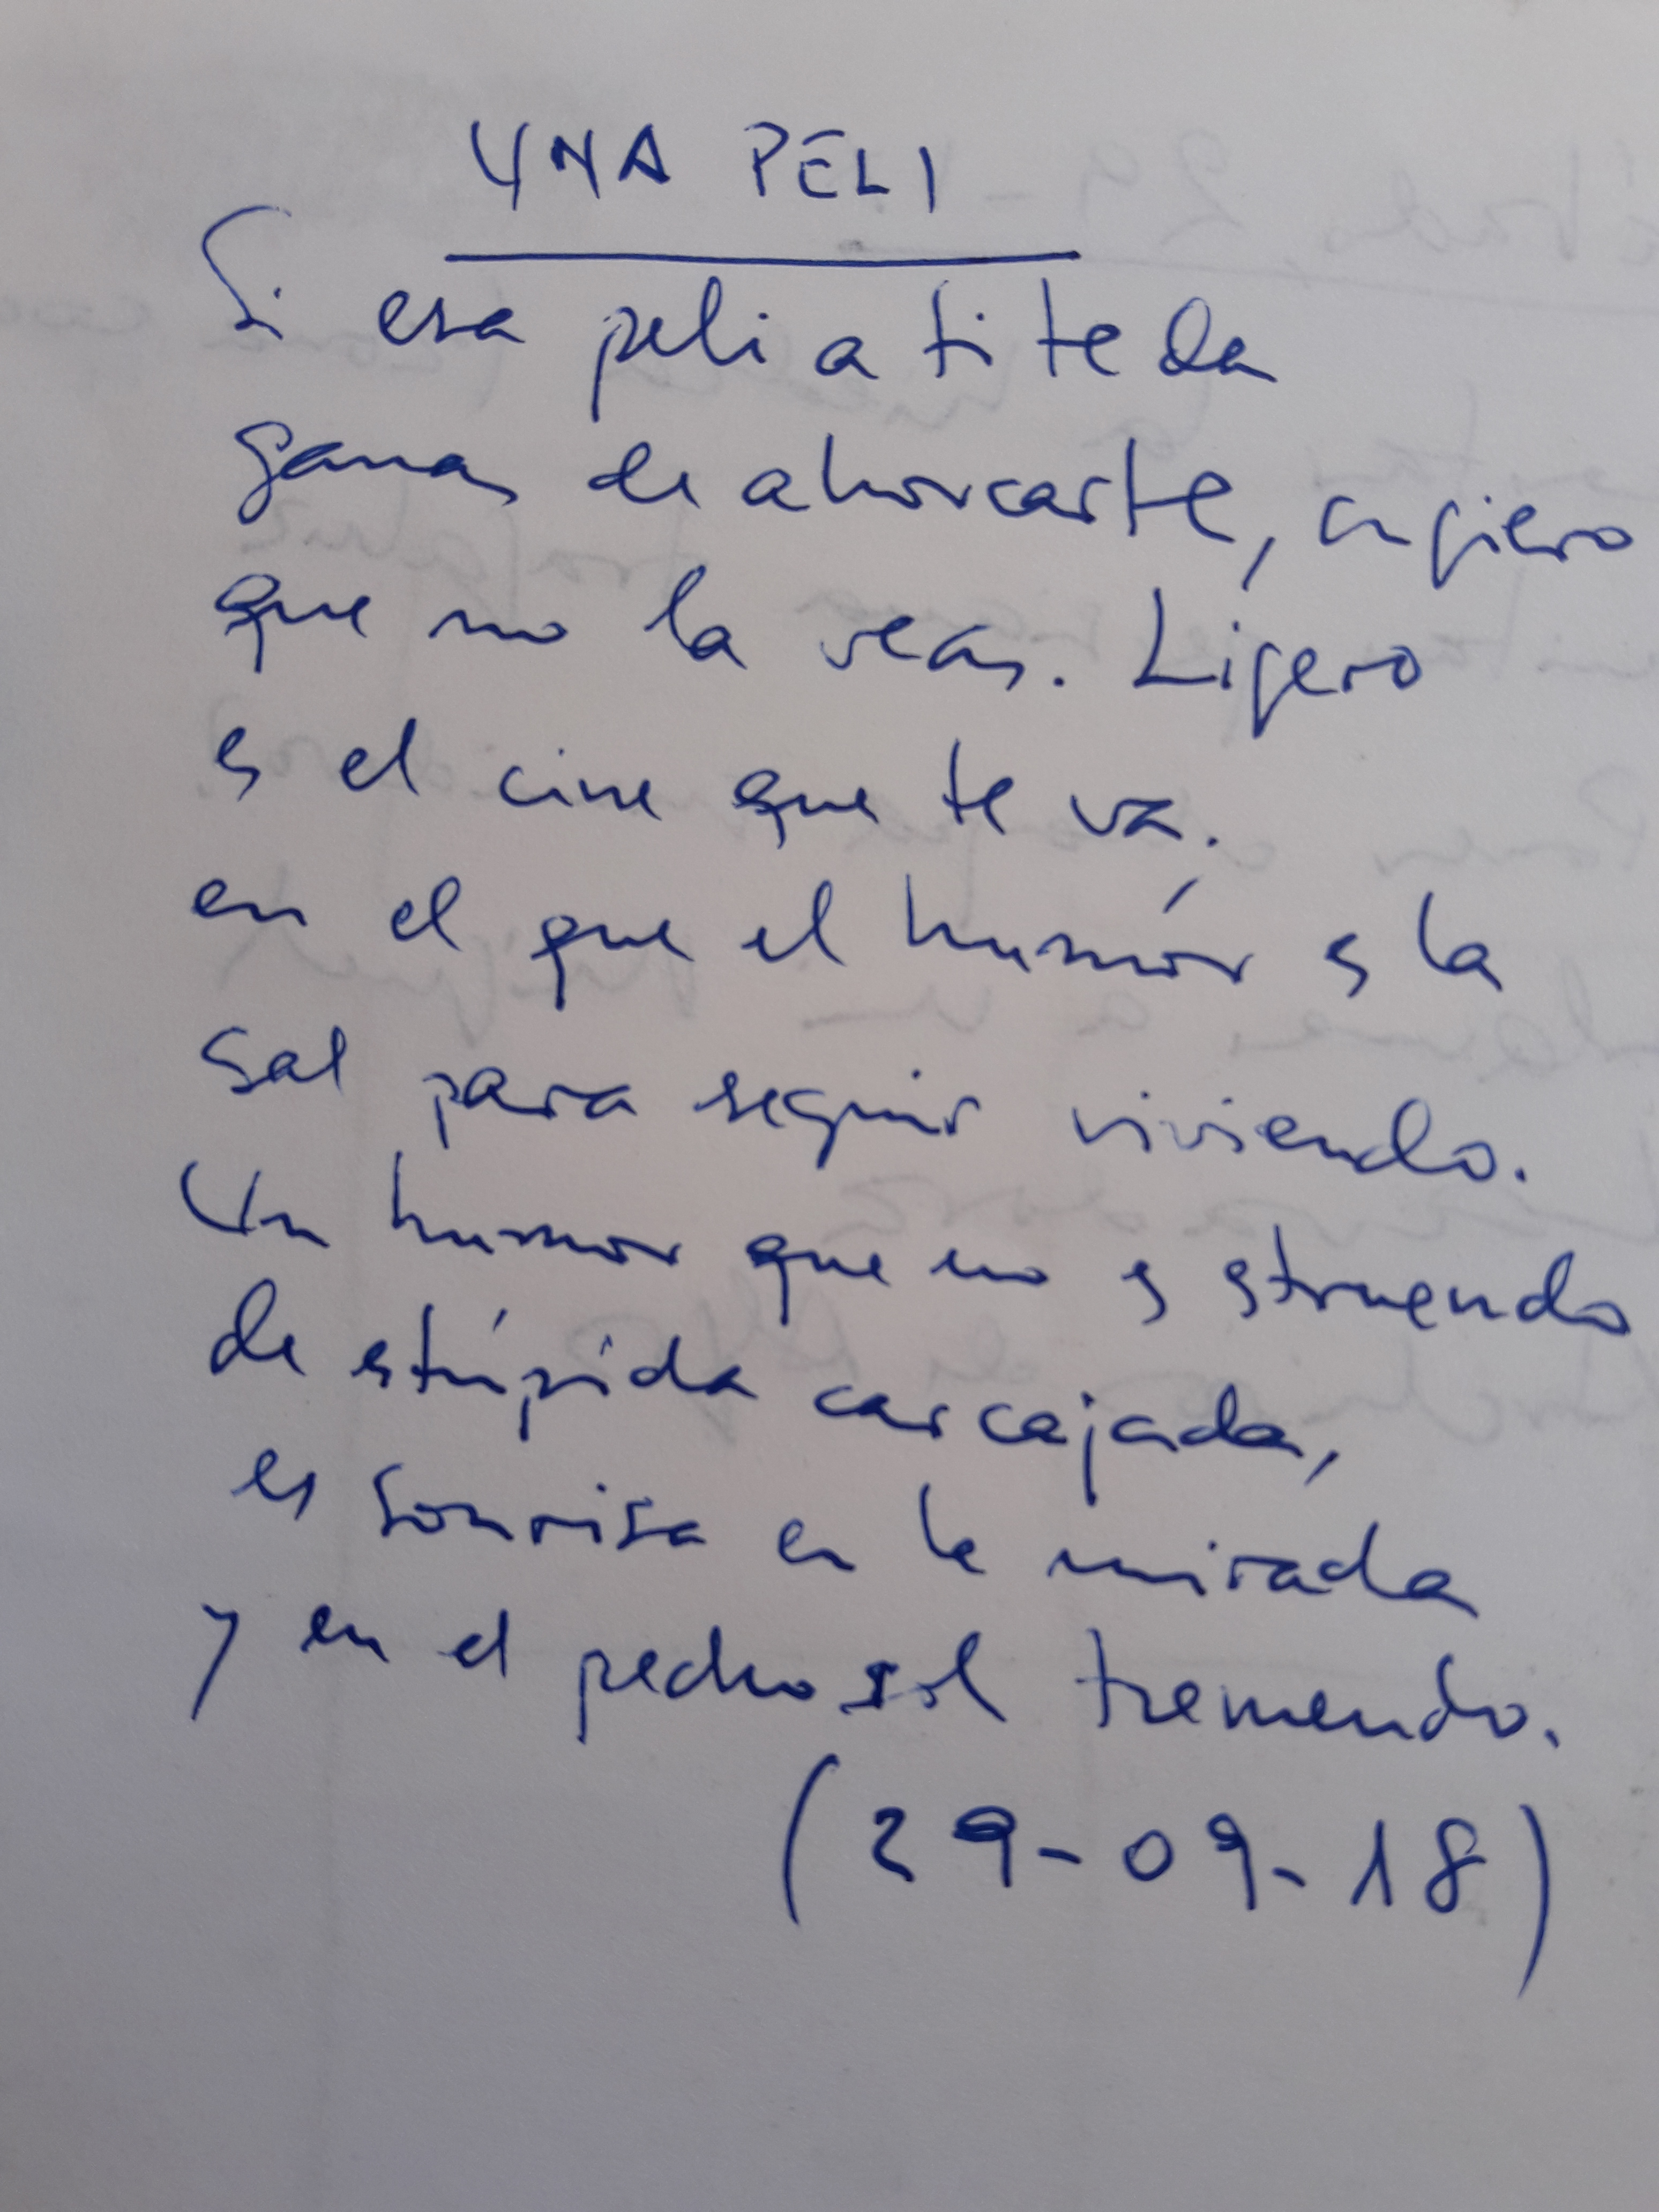 UNA PELI
Si esa peli a ti te da
ganas de ahorcarte, sugiero
que no la veas. Ligero
es el cine que te va.
en el que el humór es la
sal para seguir viviendo.
Un humor que no es estruendo
de estúpida carcajada,
es sonrisa en la mirada
y en el pecho sol tremendo.
(29-09-18)